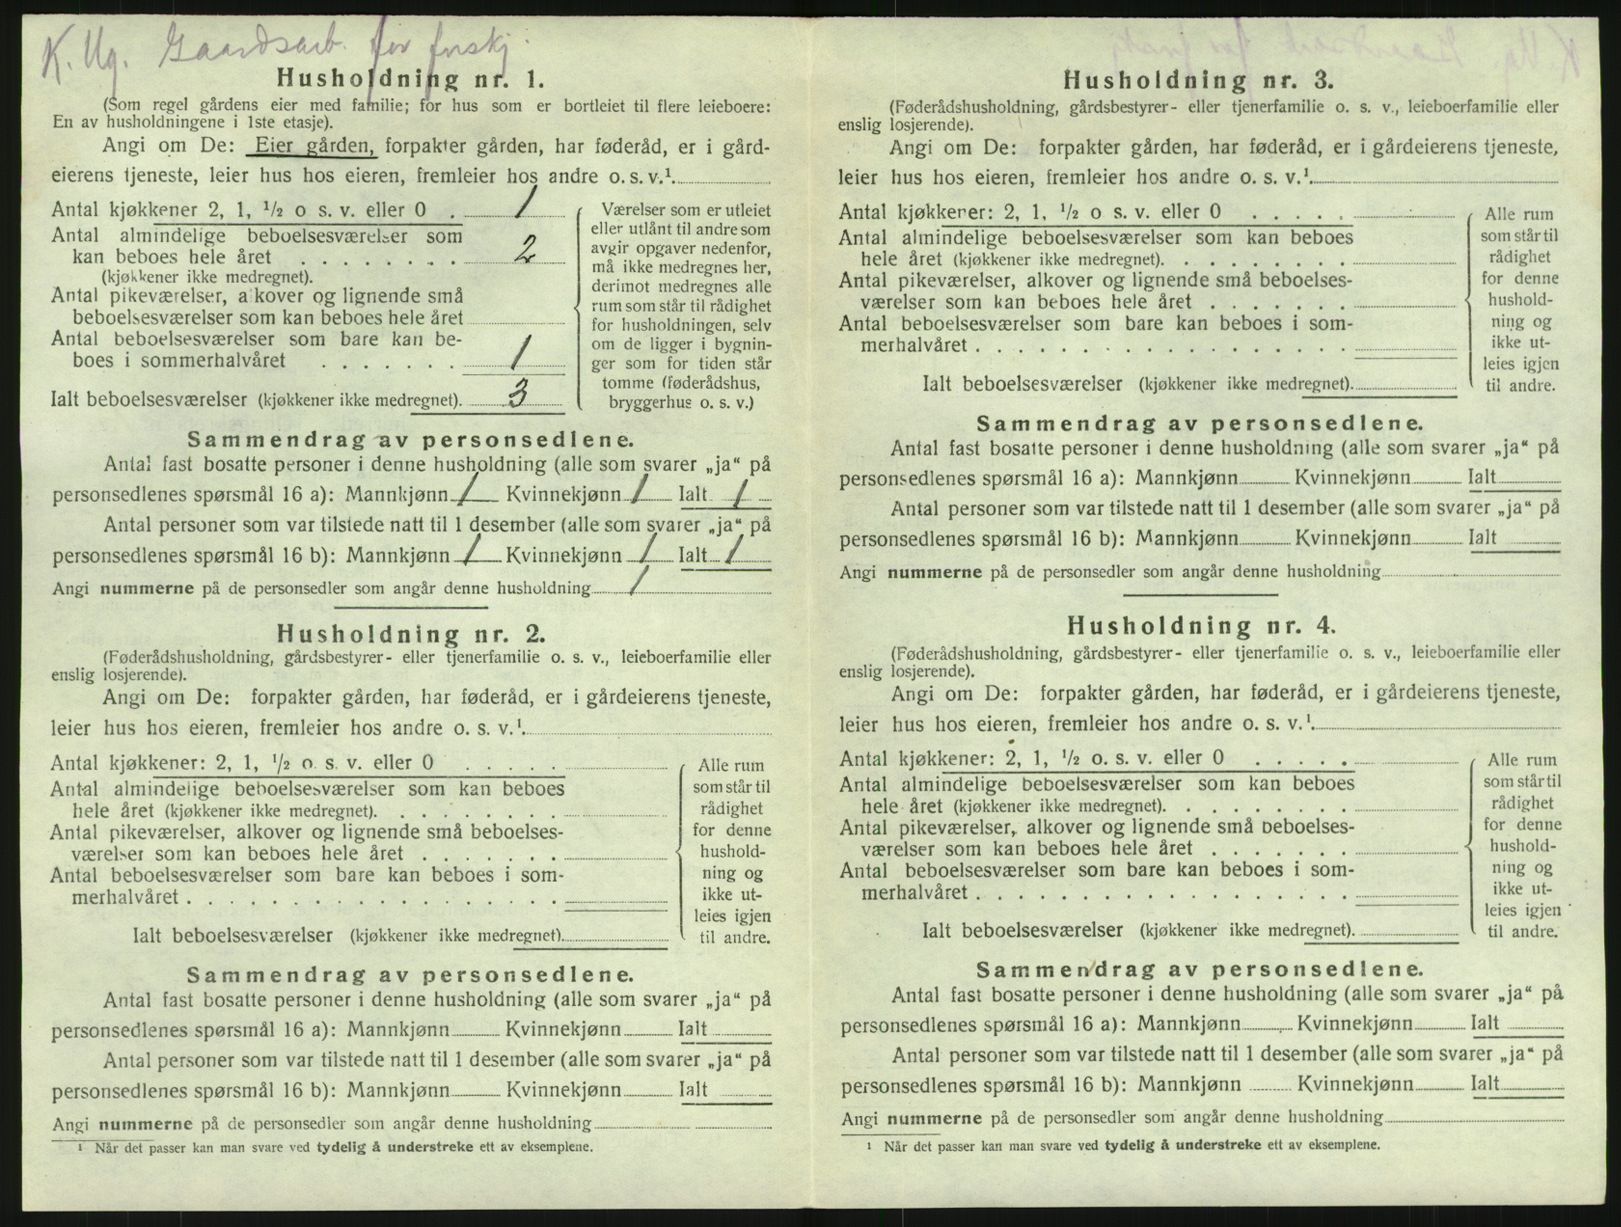 K. Ug. Gaardsarb. for forskj.
Husholdning nr. 1.
(Som regel gårdens eier med familie; for hus som er bortleiet til flere leieboere:
En av husholdningene i 1ste etasje).
Angi om De: Eier gården, forpakter gården, har føderåd, er i gård-
eierens tjeneste, leier hus hos eieren, fremleier hos andre o. s. v.¹
Antal kjøkkener 2, 1, ½ o s. v. eller 0 . 1
Antal almindelige beboelsesværelser som
kan beboes hele året . . . . . . . . 2
(kjøkkener ikke medregnet).
Antal pikeværelser, alkover og lignende små
beboelsesværelser som kan beboes hele året
Antal beboelsesværelser som bare kan be-
boes i sommerhalvåret . . . . . . . 1
Ialt beboelsesværelser (kjøkkener ikke medregnet). 3
Værelser som er utleiet
eller utlånt til andre som
avgir opgaver nedenfor,
må ikke medregnes her,
derimot medregnes alle
rum som står til rådighet
for husholdningen, selv
om de ligger i bygnin-
ger som for tiden står
tomme (føderådshus,
bryggerhus o. s. v.)
Sammendrag av personsedlene.
Antal fast bosatte personer i denne husholdning (alle som svarer „ja“ på
personsedlenes spørsmål 16 a): Mannkjønn 1 Kvinnekjønn 1 Ialt 1
Antal personer som var tilstede natt til 1 desember (alle som svarer „ja“ på
personsedlenes spørsmål 16 b): Mannkjønn 1 Kvinnekjønn 1 Ialt 1
Angi nummerne på de personsedler som angår denne husholdning 1
Husholdning nr. 2.
(Føderådshusholdning, gårdsbestyrer- eller tjenerfamilie o. s. v., leieboerfamilie eller
enslig losjerende).
Angi om De: forpakter gården, har føderåd, er i gårdeierens tjeneste,
leier hus hos eieren, fremleier hos andre o. s. v.¹
Antal kjøkkener: 2, 1, ½ o. s. v. eller 0 . . . . .
Antal almindelige beboelsesværelser som kan beboes
hele året (kjøkkener ikke medregnet). . . . . . . .
Antal pikeværelser, alkover og lignende små beboelses-
værelser som kan beboes hele året . . . . . . .
Antal beboelsesværelser som bare kan beboes i som-
merhalvåret . . . . . . . . . . . . . . . .
Ialt beboelsesværelser (kjøkkener ikke medregnet).
Alle rum
som står til
rådighet
for denne
hushold-
ning og
ikke ut-
leies igjen
til andre.
Sammendrag av personsedlene.
Antal fast bosatte personer i denne husholdning (alle som svarer „ja“ på
personsedlenes spørsmål 16 a): Mannkjønn Kvinnekjønn Ialt
Antal personer som var tilstede natt til 1 desember (alle som svarer „ja“ på
personsedlenes spørsmål 16 b): Mannkjønn Kvinnekjønn Ialt
Angi nummerne på de personsedler som angår denne husholdning
¹ Når det passer kan man svare ved tydelig å understreke ett av eksemplene.
Husholdning nr. 3.
(Føderådshusholdning, gårdsbestyrer- eller tjenerfamilie o. s. v., leieboerfamilie eller
enslig losjerende).
Angi om De: forpakter gården, har føderåd, er i gårdeierens tjeneste,
leier hus hos eieren, fremleier hos andre o. s. v.¹
Antal kjøkkener: 2, 1, ½ o s. v. eller 0 . . . . .
Antal almindelige beboelsesværelser som kan beboes
hele året (kjøkkener ikke medregnet). . . . . . . .
Antal pikeværelser, alkover og lignende små beboelses-
værelser som kan beboes hele året . . . . . . .
Antal beboelsesværelser som bare kan beboes i som-
merhalvåret . . . . . . . . . . . . . . . .
Ialt beboelsesværelser (kjøkkener ikke medregnet).
Alle rum
som står til
rådighet
for denne
hushold-
ning og
ikke ut-
leies igjen
til andre.
Sammendrag av personsedlene.
Antal fast bosatte personer i denne husholdning (alle som svarer „ja“ på
personsedlenes spørsmål 16 a): Mannkjønn Kvinnekjønn Ialt
Antal personer som var tilstede natt til 1 desember (alle som svarer „ja“ på
personsedlenes spørsmål 16 b): Mannkjønn Kvinnekjønn Ialt
Angi nummerne på de personsedler som angår denne husholdning
Husholdning nr. 4.
(Føderådshusholdning, gårdsbestyrer- eller tjenerfamilie o. s. v., leieboerfamilie eller
enslig losjerende).
Angi om De: forpakter gården, har føderåd, er i gårdeierens tjeneste,
leier hus hos eieren, fremleier hos andre o. s. v.¹
Antal kjøkkener: 2, 1, ½ o. s. v. eller 0 . . . . .
Antal almindelige beboelsesværelser som kan beboes
hele året (kjøkkener ikke medregnet). . . . . . . .
Antal pikeværelser, alkover og lignende små beboelses-
værelser som kan beboes hele året . . . . . . .
Antal beboelsesværelser som bare kan beboes i som-
merhalvåret . . . . . . . . . . . . . . . .
Ialt beboelsesværelser (kjøkkener ikke medregnet).
Alle rum
som står til
rådighet
for denne
hushold-
ning og
ikke ut-
leies igjen
til andre.
Sammendrag av personsedlene.
Antal fast bosatte personer i denne husholdning (alle som svarer „ja“ på
personsedlenes spørsmål 16 a): Mannkjønn Kvinnekjønn Ialt
Antal personer som var tilstede natt til 1 desember (alle som svarer „ja“ på
personsedlenes spørsmål 16 b): Mannkjønn Kvinnekjønn Ialt
Angi nummerne på de personsedler som angår denne husholdning
¹ Når det passer kan man svare ved tydelig å understreke ett av eksemplene.